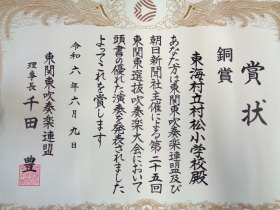 賞状
銅賞
東海村立村松小学校殿
あなた方は東関東吹奏楽連盟及び
朝日新聞社主催による第二十五回
東関東選抜吹奏楽大会において
頭書の優れた演奏を発表されました
よってこれを賞します
令和六年六月九日
東関東吹奏楽連盟
理事長 千田 豊